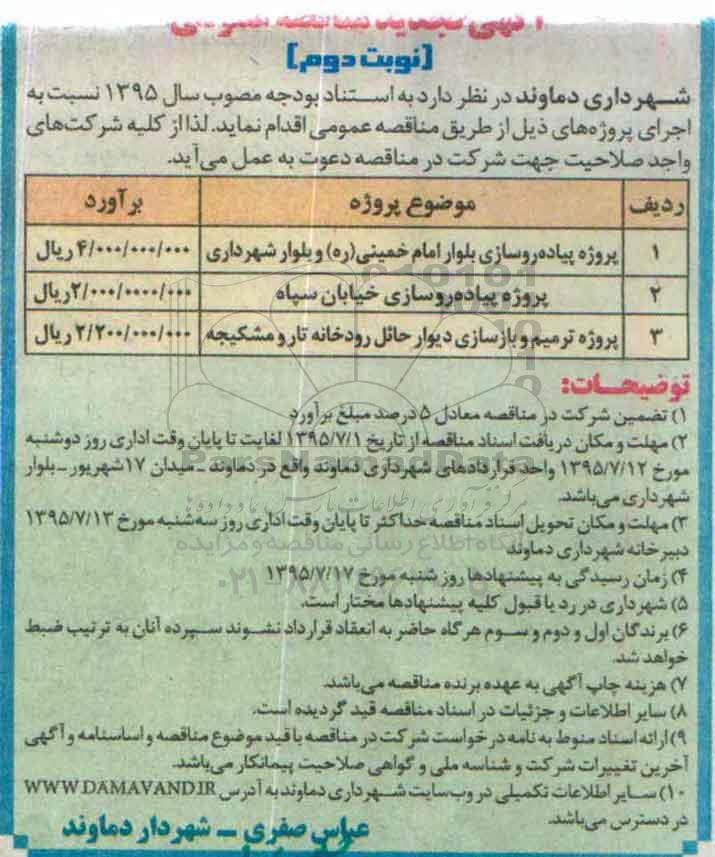 آگهی تجدید مناقصه عمومی
(نوبت دوم)
شهرداری دماوند در نظر دارد به استناد بودجه مصوب سال ۱۳۹۵ نسبت به
اجرای پروژه‌های ذیل از طریق مناقصه عمومی اقدام نماید. لذا از کلیه شرکت‌های
واجد صلاحیت جهت شرکت در مناقصه دعوت به عمل می‌آید.
ردیف موضوع پروژه برآورد
۱ پروژه پیاده‌روسازی بلوار امام خمینی(ره) و بلوار شهرداری ۴/۰۰۰/۰۰۰/۰۰۰ ریال
۲ پروژه پیاده‌روسازی خیابان سپاه ۲/۰۰۰/۰۰۰۰/۰۰۰ ریال
۳ پروژه ترمیم و بازسازی دیوار حائل رودخانه تار و مشکیجه ۲/۲۰۰/۰۰۰/۰۰۰ ریال
توضیحات:
۱) تضمین شرکت در مناقصه معادل ۵ درصد مبلغ برآورد
۲) مهلت و مکان دریافت اسناد مناقصه از تاریخ ۱۳۹۵/۷/۱ لغایت تا پایان وقت اداری روز دوشنبه
مورخ ۱۳۹۵/۷/۱۲ واحد قراردادهای شهرداری دماوند واقع در دماوند ـ میدان ۱۷ شهریور ـ بلوار
شهرداری می‌باشد.
۳) مهلت و مکان تحویل اسناد مناقصه حداکثر تا پایان وقت اداری روز سه‌شنبه مورخ ۱۳۹۵/۷/۱۳
دبیرخانه شهرداری دماوند
۴) زمان رسیدگی به پیشنهادها روز شنبه مورخ ۱۳۹۵/۷/۱۷
۵) شهرداری در رد یا قبول کلیه پیشنهادها مختار است.
۶) برندگان اول و دوم و سوم هرگاه حاضر به انعقاد قرارداد نشوند سپرده آنان به ترتیب ضبط
خواهد شد.
۷) هزینه چاپ آگهی به عهده برنده مناقصه می‌باشد.
۸) سایر اطلاعات و جزئیات در اسناد مناقصه قید گردیده است.
۹) ارائه اسناد منوط به نامه درخواست شرکت در مناقصه با قید موضوع مناقصه و اساسنامه و آگهی
آخرین تغییرات شرکت و شناسه ملی و گواهی صلاحیت پیمانکار می‌باشد.
۱۰) سایر اطلاعات تکمیلی در وب‌سایت شهرداری دماوند به آدرس WWW.DAMAVAND.IR
در دسترس می‌باشد.
عباس صفری ـ شهردار دماوند
ParsNamadData